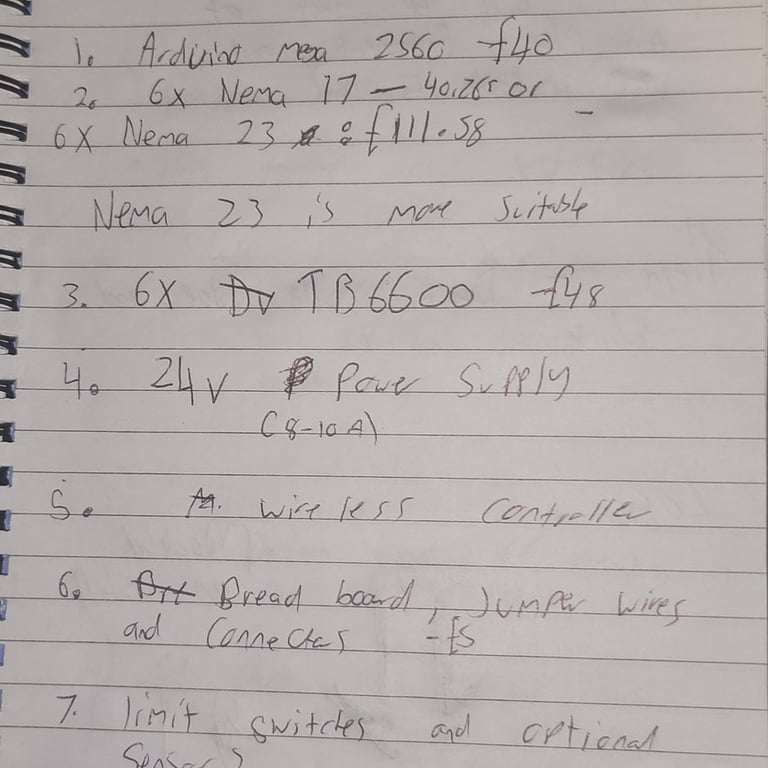 1. Arduino mega 2560 £40
2. 6x Nema 17 — 40.26s or
6X Nema 23 : £111.58 -
Nema 23 is more suitable
3. 6X TB6600 £48
4. 24v Power Supply
(8-10A)
5. wireless controller
6. Bread board, Jumper wires
and connectors - £5
7. limit switches and optional
sensors